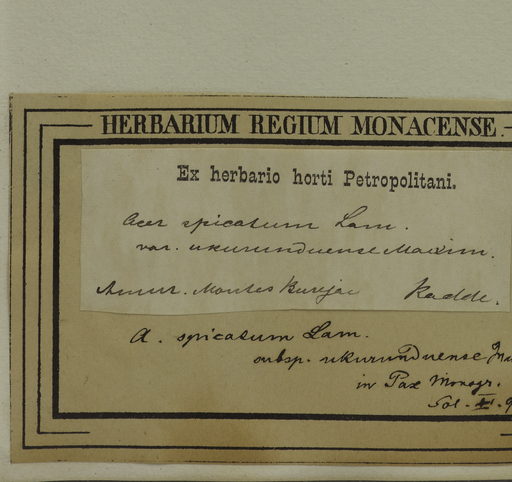 HERBARIUM REGIUM MONACENSE.
Ex herbario horti Petropolitani.
Acer spicatum Lam.
var. ukurunduense Maxim.
Amur. Montes Burejae Radde.
A. spicatum Lam.
subsp. ukurunduense
in Pax Monogr.